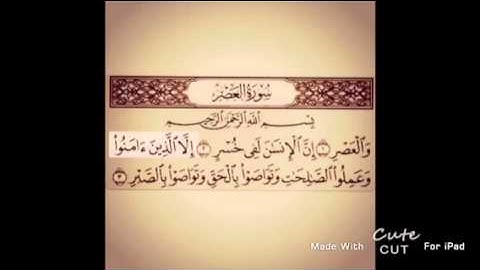 سُورَةُ الْعَصْرِ
بِسْمِ اللَّهِ الرَّحْمَٰنِ الرَّحِيمِ
وَالْعَصْرِ ﴿١﴾ إِنَّ الْإِنسَٰنَ لَفِى خُسْرٍ ﴿٢﴾ إِلَّا الَّذِينَ ءَامَنُوا۟
وَعَمِلُوا۟ الصَّٰلِحَٰتِ وَتَوَاصَوْا۟ بِالْحَقِّ وَتَوَاصَوْا۟ بِالصَّبْرِ ﴿٣﴾
Made With Cute CUT For iPad